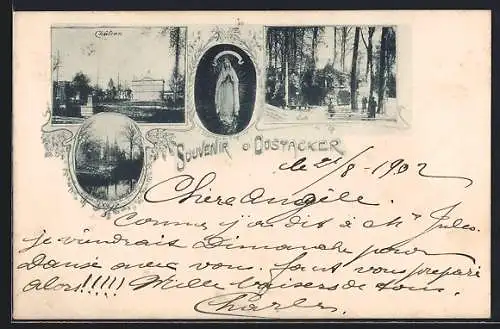 Château
SOUVENIR D'OOSTACKER
le 21/8 - 1902
Chère Angèle.
Comme j'ai dit à Mr Jules.
je viendrais Dimanche pour
Danse avec vous. faut vous préparé
alors!!!!! Mille baisers de tous.
Charles